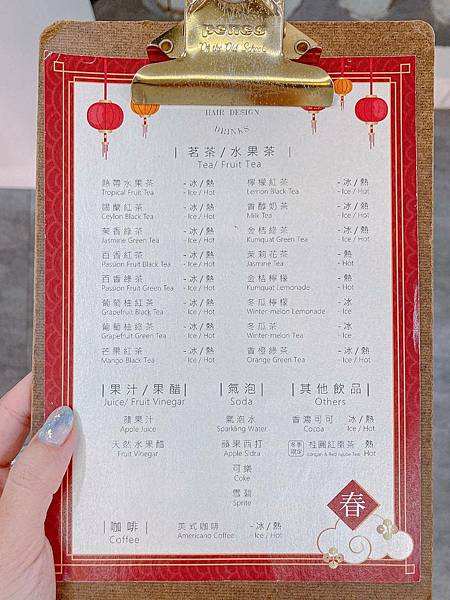 penco
HAIR DESIGN
DRINKS
| 茗茶/水果茶 |
Tea/ Fruit Tea
熱帶水果茶 - 冰/熱
Tropical Fruit Tea - Ice / Hot
錫蘭紅茶 - 冰/熱
Ceylon Black Tea - Ice / Hot
茉香綠茶 - 冰/熱
Jasmine Green Tea - Ice / Hot
百香紅茶 - 冰/熱
Passion Fruit Black Tea - Ice / Hot
百香綠茶 - 冰/熱
Passion Fruit Green Tea - Ice / Hot
葡萄柚紅茶 - 冰/熱
Grapefruit Black Tea - Ice / Hot
葡萄柚綠茶 - 冰/熱
Grapefruit Green Tea - Ice / Hot
芒果紅茶 - 冰/熱
Mango Black Tea - Ice / Hot
檸檬紅茶 - 冰/熱
Lemon Black Tea - Ice / Hot
香醇奶茶 - 冰/熱
Milk Tea - Ice / Hot
金桔綠茶 - 冰/熱
Kumquat Green Tea - Ice / Hot
茉莉花茶 - 熱
Jasmine Tea - Hot
金桔檸檬 - 熱
Kumquat Lemonade - Hot
冬瓜檸檬 - 冰
Winter-melon Lemonade - Ice
冬瓜茶 - 冰
Winter-melon Tea - Ice
香橙綠茶 - 冰/熱
Orange Green Tea - Ice / Hot
| 果汁/果醋 |
Juice/ Fruit Vinegar
蘋果汁
Apple Juice
天然水果醋
Fruit Vinegar
| 氣泡 |
Soda
氣泡水
Sparkling Water
蘋果西打
Apple Sidra
可樂
Coke
雪碧
Sprite
| 其他飲品 |
Others
香濃可可 冰/熱
Cocoa Ice / Hot
冬季限定 桂圓紅棗茶 熱
Longan & Red Jujube Tea Hot
| 咖啡 |
Coffee
美式咖啡 - 冰/熱
Americano Coffee - Ice / Hot
春